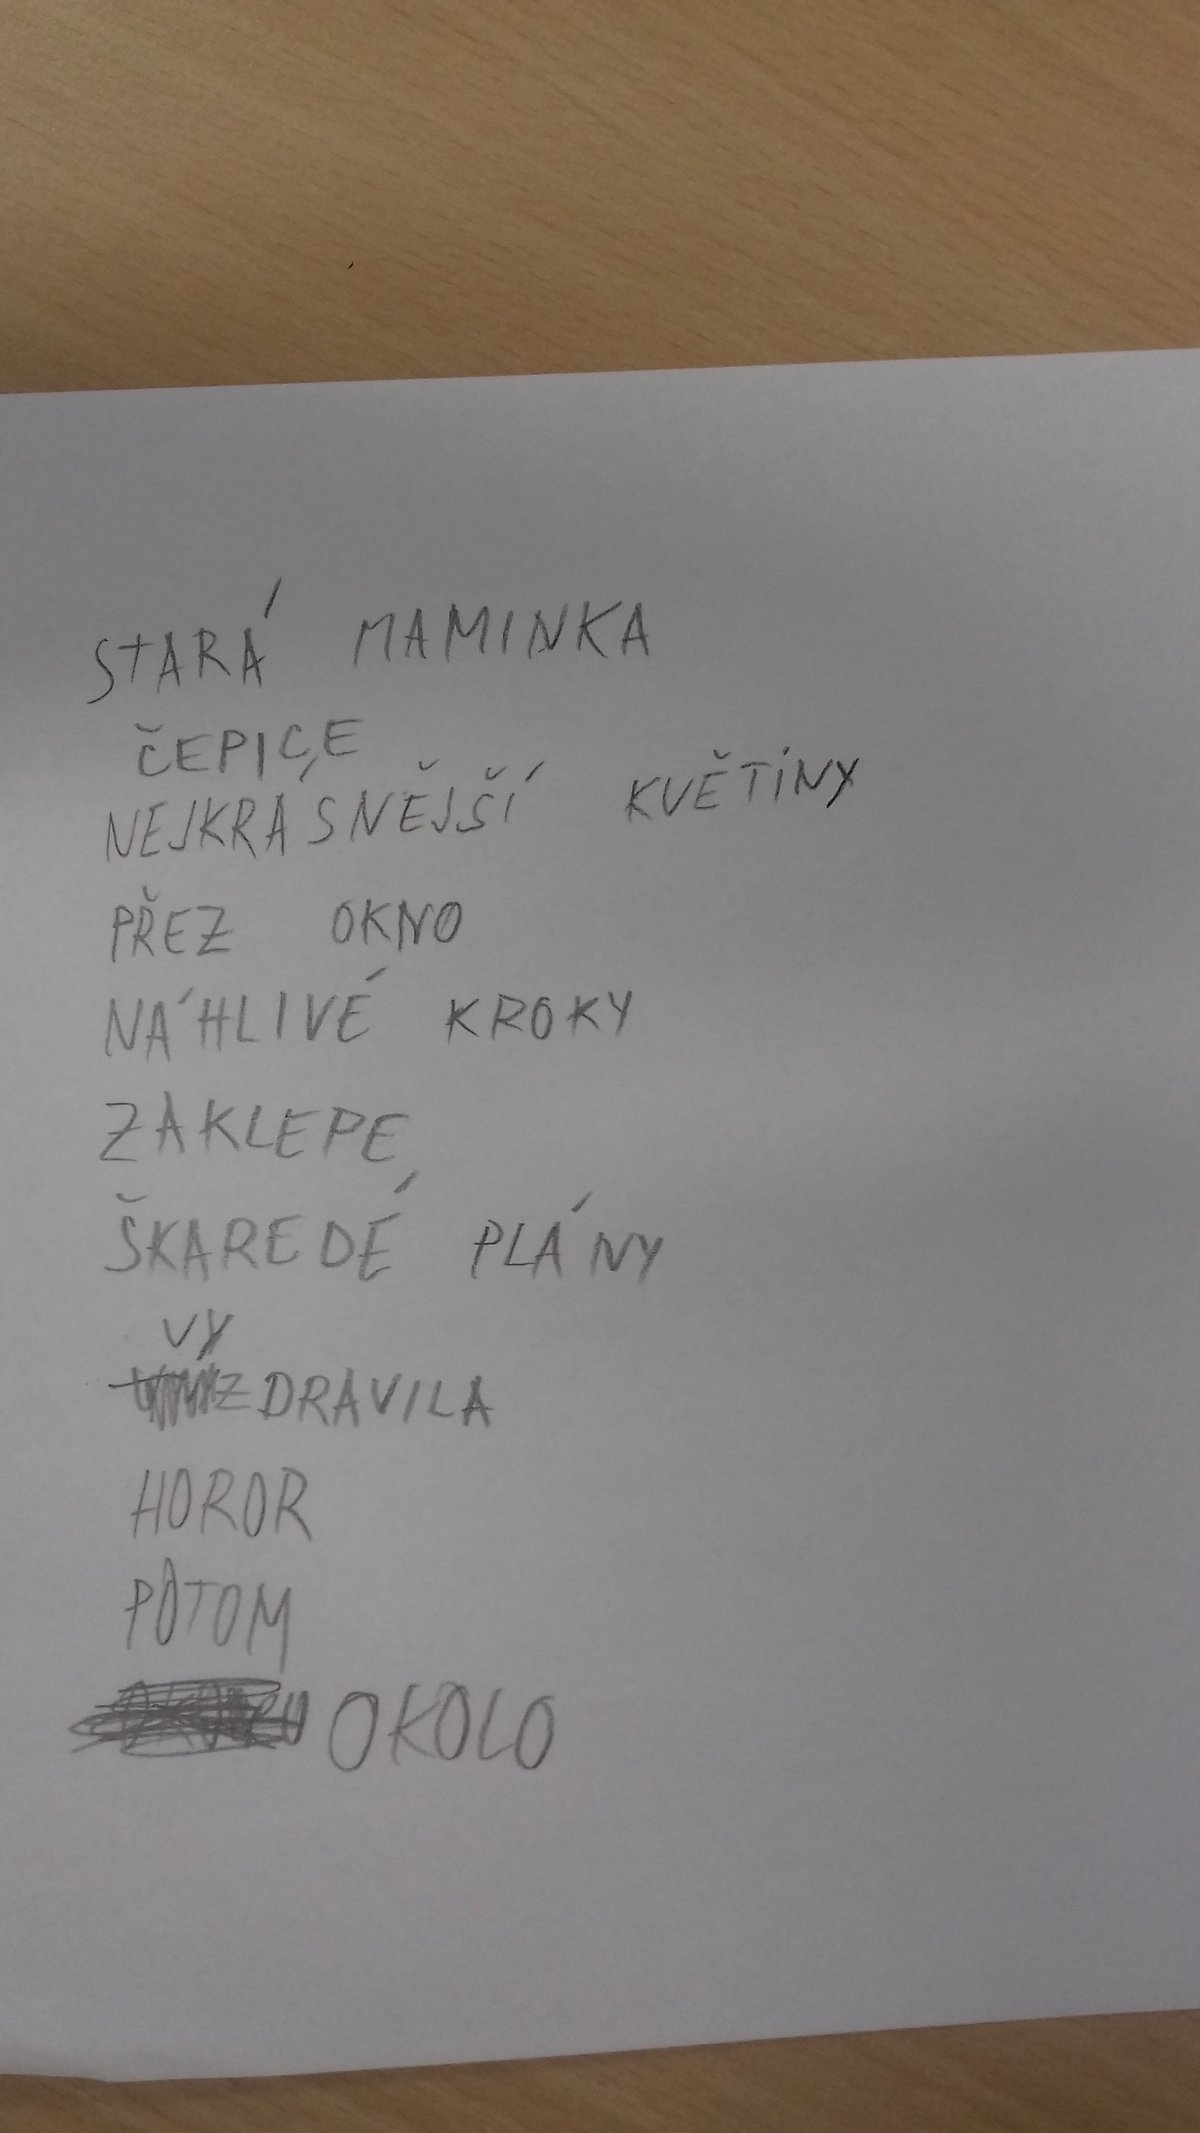 STARÁ MAMINKA
ČEPICE
NEJKRÁSNĚJŠÍ KVĚTINY
PŘEZ OKNO
NÁHLIVÉ KROKY
ZAKLEPE
ŠKAREDÉ PLÁNY
VY
ZDRAVILA
HOROR
POTOM
OKOLO